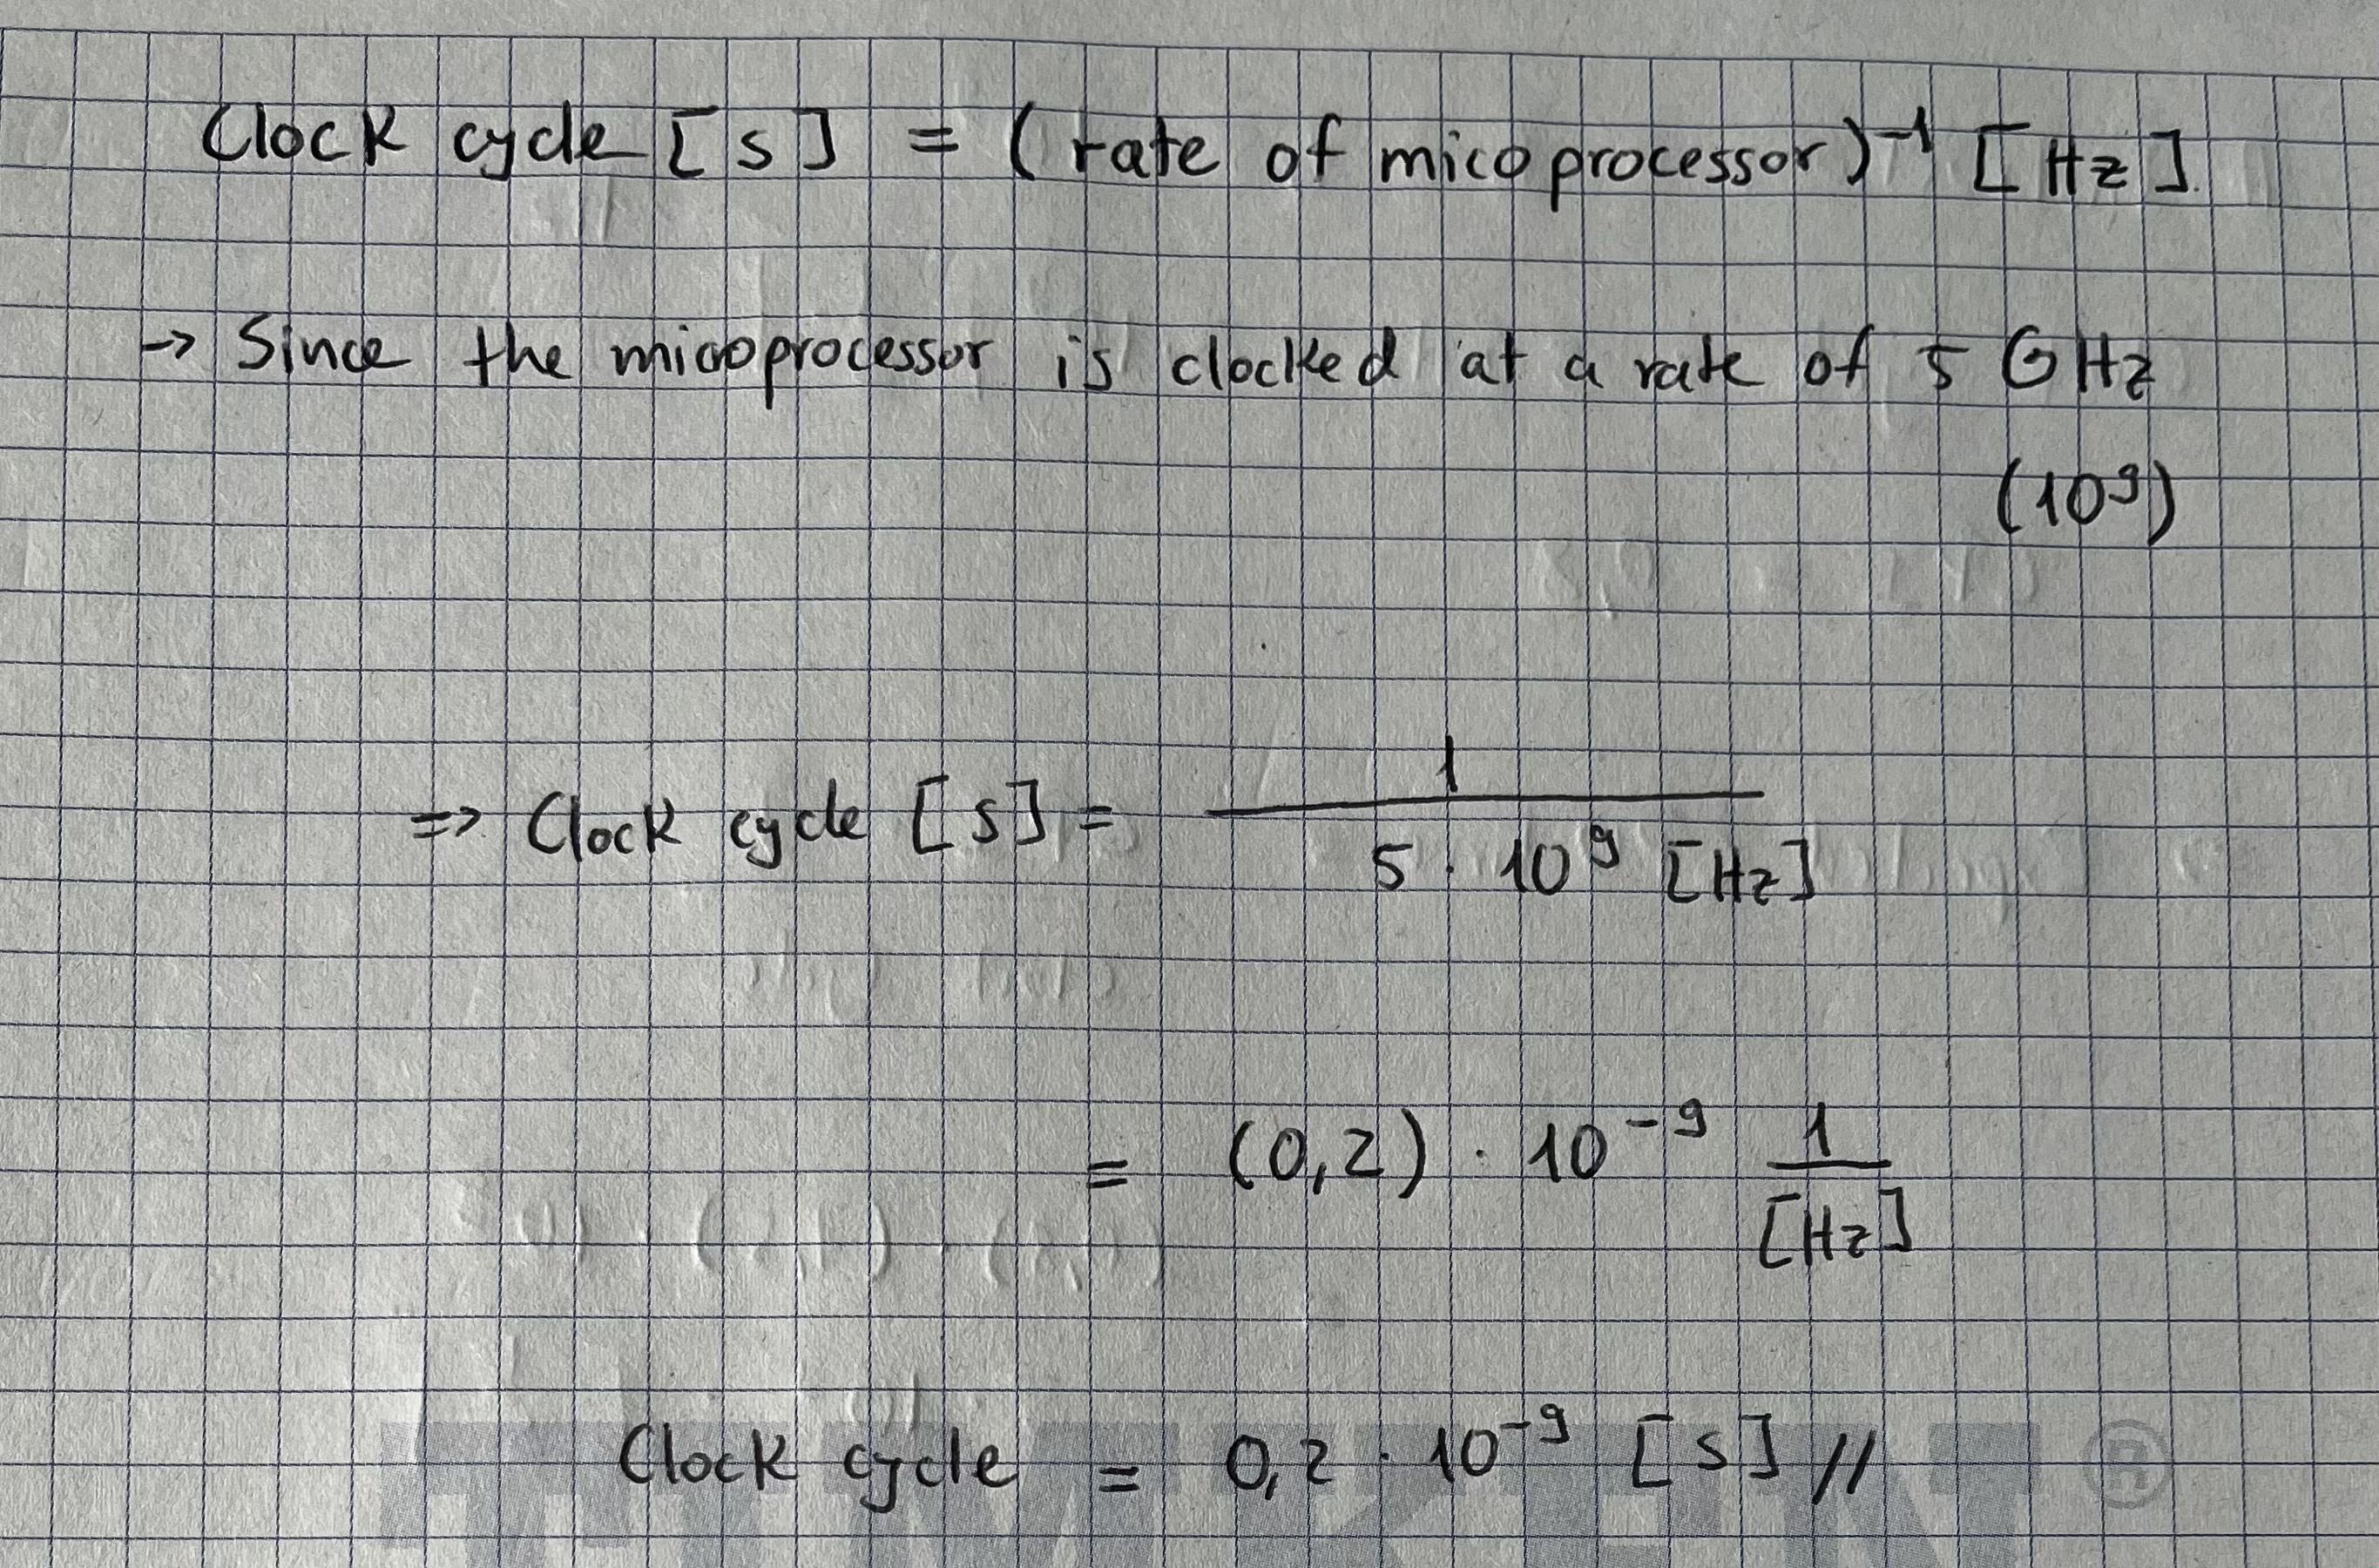 Clock cycle [s] = (rate of micoprocessor)⁻¹ [Hz].
→ Since the microprocessor is clocked at a rate of 5 GHz
(10⁹)
⇒ Clock cycle [s] = 1 / 5 · 10⁹ [Hz]
= (0,2) · 10⁻⁹ 1 / [Hz]
Clock cycle = 0,2 · 10⁻⁹ [s] //
TIMKEN ®